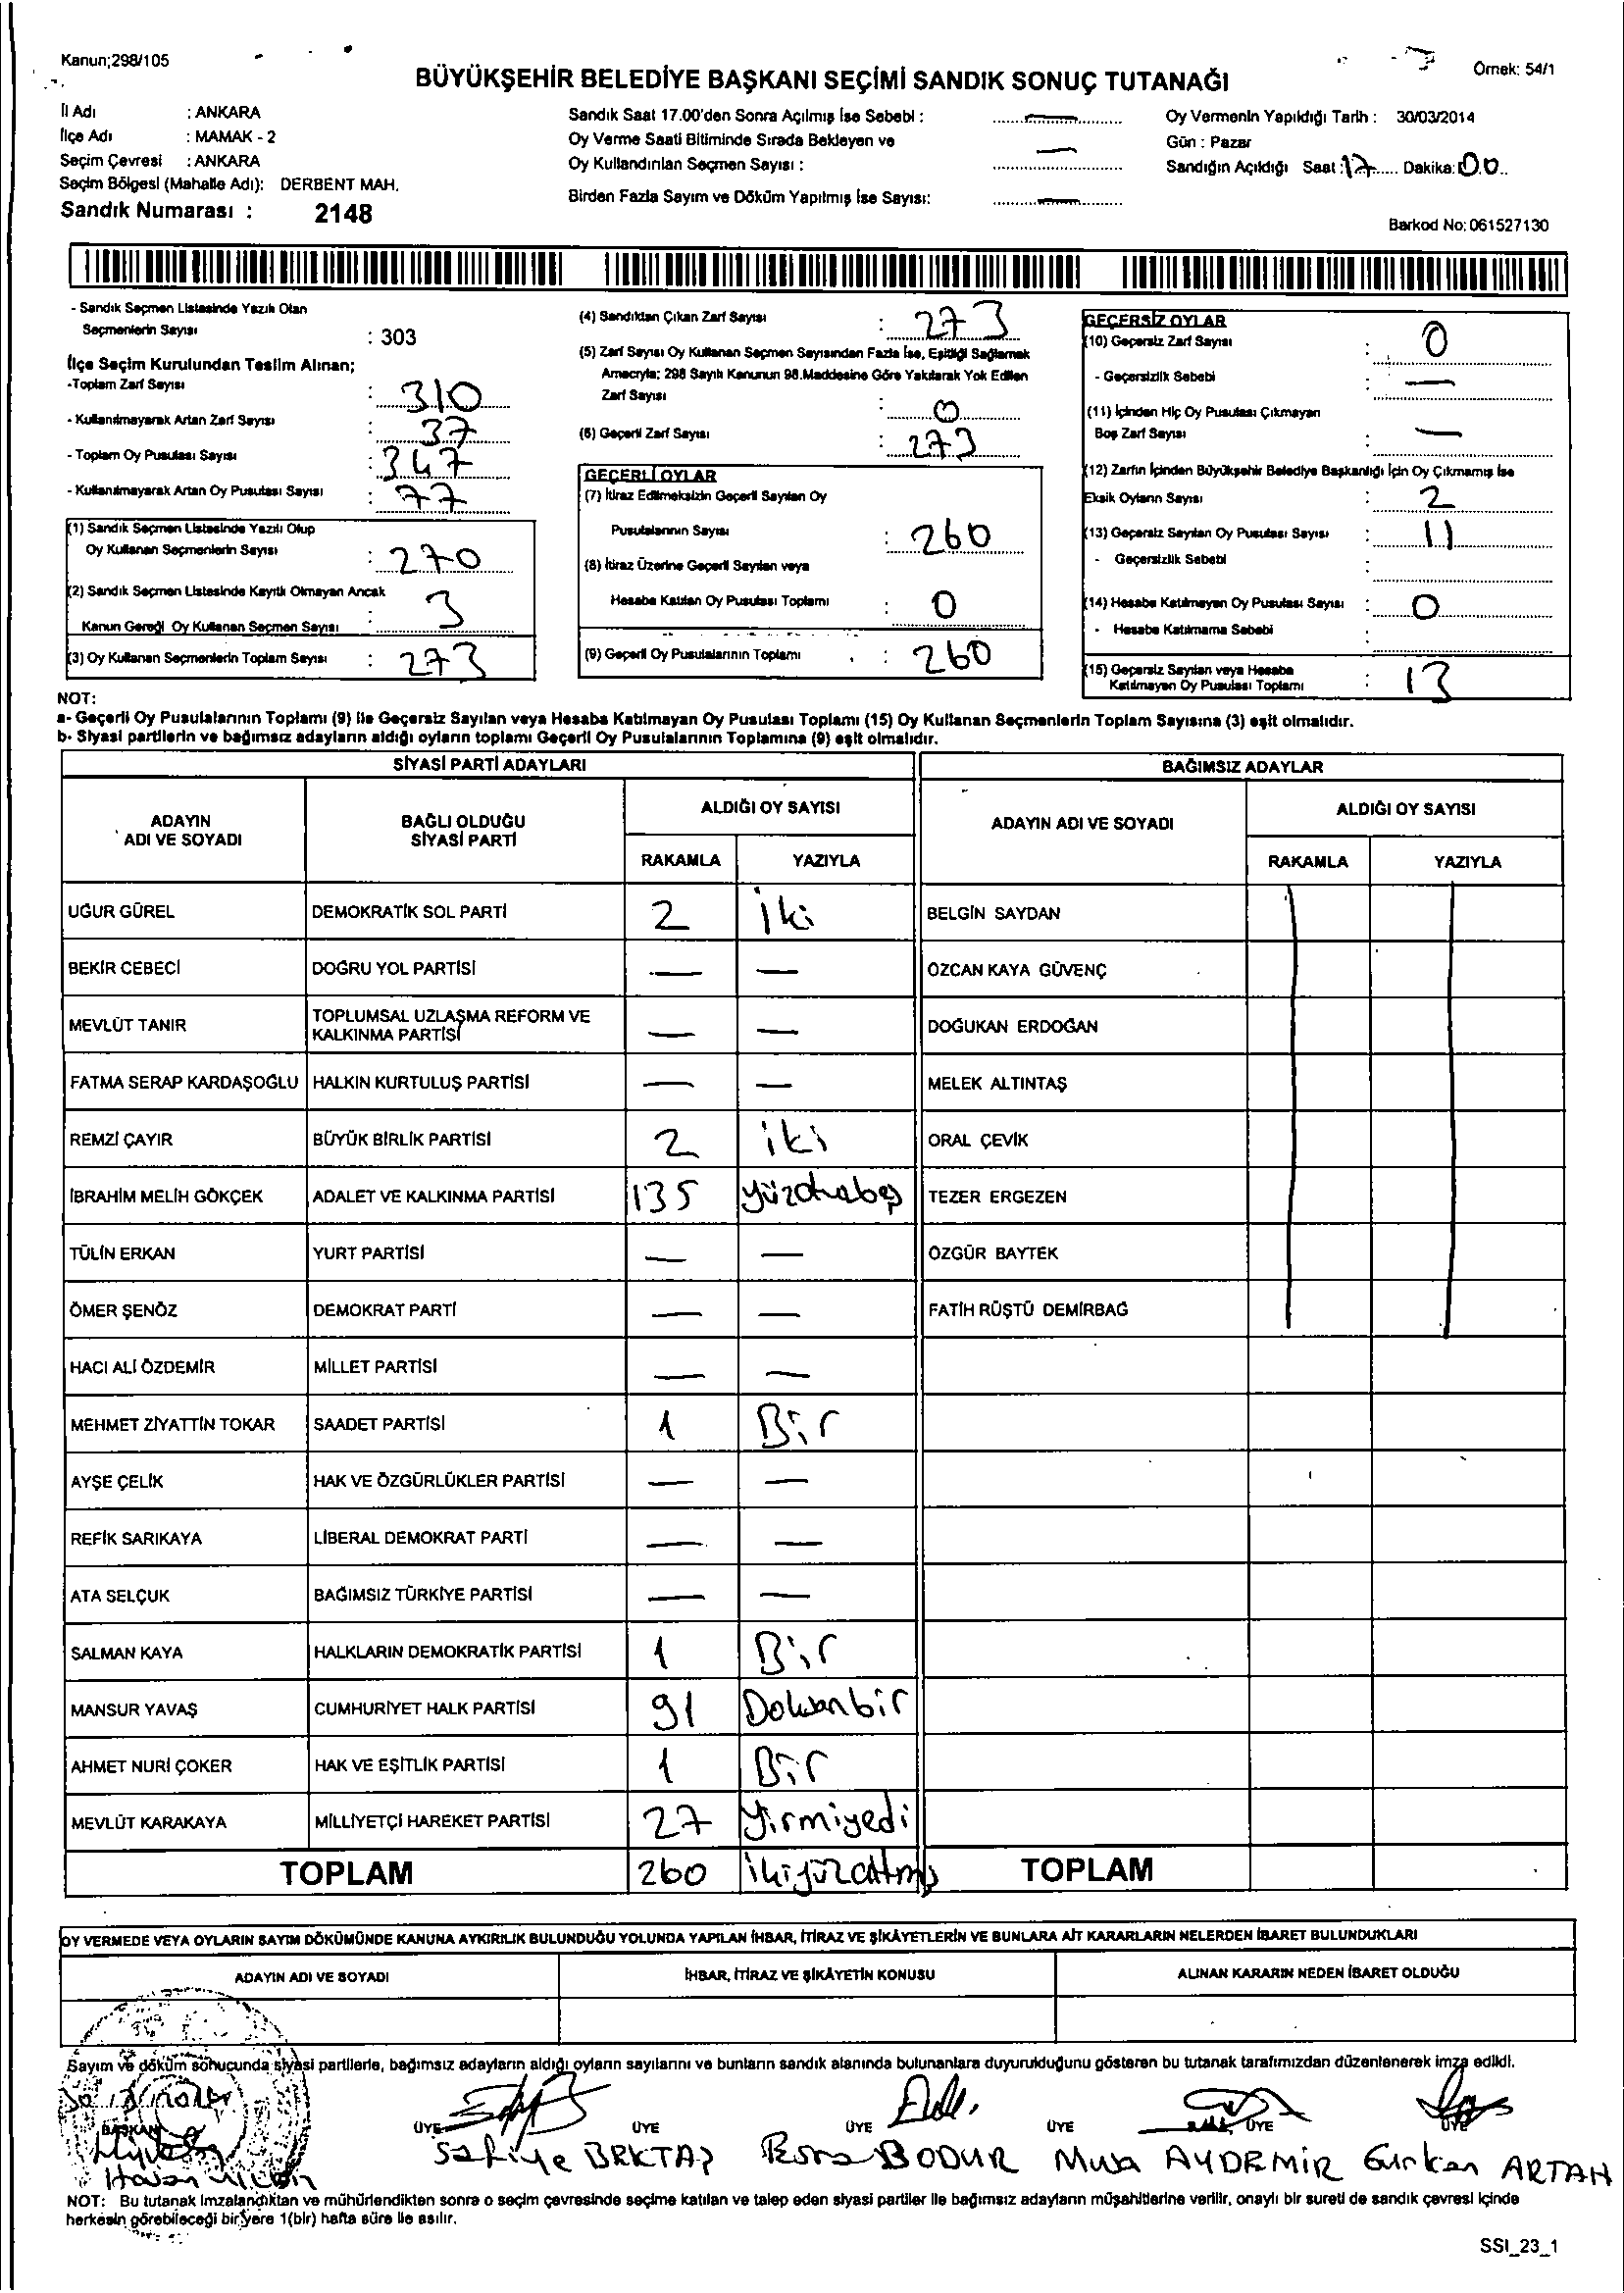 Kanun;298/105
Örnek: 54/1
BÜYÜKŞEHİR BELEDİYE BAŞKANI SEÇİMİ SANDIK SONUÇ TUTANAĞI
İl Adı : ANKARA
İlçe Adı : MAMAK - 2
Seçim Çevresi : ANKARA
Seçim Bölgesi (Mahalle Adı): DERBENT MAH.
Sandık Numarası : 2148
Sandık Saat 17.00'den Sonra Açılmış İse Sebebi : —
Oy Verme Saati Bitiminde Sırada Bekleyen ve
Oy Kullandırılan Seçmen Sayısı : —
Birden Fazla Sayım ve Döküm Yapılmış İse Sayısı: —
Oy Vermenin Yapıldığı Tarih : 30/03/2014
Gün : Pazar
Sandığın Açıldığı Saat :17 Dakika: 00
Barkod No: 061527130
- Sandık Seçmen Listesinde Yazılı Olan
Seçmenlerin Sayısı : 303
İlçe Seçim Kurulundan Teslim Alınan;
-Toplam Zarf Sayısı : 310
- Kullanılmayarak Artan Zarf Sayısı : 37
- Toplam Oy Pusulası Sayısı : 347
- Kullanılmayarak Artan Oy Pusulası Sayısı : 77
(1) Sandık Seçmen Listesinde Yazılı Olup
Oy Kullanan Seçmenlerin Sayısı : 270
(2) Sandık Seçmen Listesinde Kayıtlı Olmayan Ancak
Kanun Gereği Oy Kullanan Seçmen Sayısı : 3
(3) Oy Kullanan Seçmenlerin Toplam Sayısı : 273
(4) Sandıktan Çıkan Zarf Sayısı : 273
(5) Zarf Sayısı Oy Kullanan Seçmen Sayısından Fazla İse, Eşitliği Sağlamak
Amacıyla; 298 Sayılı Kanunun 98.Maddesine Göre Yakılarak Yok Edilen
Zarf Sayısı : 0
(6) Geçerli Zarf Sayısı : 273
GEÇERLİ OYLAR
(7) İtiraz Edilmeksizin Geçerli Sayılan Oy
Pusulalarının Sayısı : 260
(8) İtiraz Üzerine Geçerli Sayılan veya
Hesaba Katılan Oy Pusulası Toplamı : 0
(9) Geçerli Oy Pusulalarının Toplamı : 260
GEÇERSİZ OYLAR
(10) Geçersiz Zarf Sayısı : 0
- Geçersizlik Sebebi : —
(11) İçinden Hiç Oy Pusulası Çıkmayan
Boş Zarf Sayısı : —
(12) Zarfın İçinden Büyükşehir Belediye Başkanlığı İçin Oy Çıkmamış İse
Eksik Oyların Sayısı : 2
(13) Geçersiz Sayılan Oy Pusulası Sayısı : 11
- Geçersizlik Sebebi :
(14) Hesaba Katılmayan Oy Pusulası Sayısı : 0
- Hesaba Katılmama Sebebi :
(15) Geçersiz Sayılan veya Hesaba
Katılmayan Oy Pusulası Toplamı : 13
NOT:
a- Geçerli Oy Pusulalarının Toplamı (9) ile Geçersiz Sayılan veya Hesaba Katılmayan Oy Pusulası Toplamı (15) Oy Kullanan Seçmenlerin Toplam Sayısına (3) eşit olmalıdır.
b- Siyasi partilerin ve bağımsız adayların aldığı oyların toplamı Geçerli Oy Pusulalarının Toplamına (9) eşit olmalıdır.
SİYASİ PARTİ ADAYLARI
BAĞIMSIZ ADAYLAR
ADAYIN ADI VE SOYADI
BAĞLI OLDUĞU SİYASİ PARTİ
ALDIĞI OY SAYISI
RAKAMLA YAZIYLA
ADAYIN ADI VE SOYADI
ALDIĞI OY SAYISI
RAKAMLA YAZIYLA
UĞUR GÜREL DEMOKRATİK SOL PARTİ 2 İki BELGİN SAYDAN
BEKİR CEBECİ DOĞRU YOL PARTİSİ — — ÖZCAN KAYA GÜVENÇ
MEVLÜT TANIR TOPLUMSAL UZLAŞMA REFORM VE KALKINMA PARTİSİ — — DOĞUKAN ERDOĞAN
FATMA SERAP KARDAŞOĞLU HALKIN KURTULUŞ PARTİSİ — — MELEK ALTINTAŞ
REMZİ ÇAYIR BÜYÜK BİRLİK PARTİSİ 2 iki ORAL ÇEVİK
İBRAHİM MELİH GÖKÇEK ADALET VE KALKINMA PARTİSİ 135 yüzotuzbeş TEZER ERGEZEN
TÜLİN ERKAN YURT PARTİSİ — — ÖZGÜR BAYTEK
ÖMER ŞENÖZ DEMOKRAT PARTİ — — FATİH RÜŞTÜ DEMİRBAĞ
HACI ALİ ÖZDEMİR MİLLET PARTİSİ — —
MEHMET ZİYATTİN TOKAR SAADET PARTİSİ 1 Bir
AYŞE ÇELİK HAK VE ÖZGÜRLÜKLER PARTİSİ — —
REFİK SARIKAYA LİBERAL DEMOKRAT PARTİ — —
ATA SELÇUK BAĞIMSIZ TÜRKİYE PARTİSİ — —
SALMAN KAYA HALKLARIN DEMOKRATİK PARTİSİ 1 Bir
MANSUR YAVAŞ CUMHURİYET HALK PARTİSİ 91 Doksanbir
AHMET NURİ ÇOKER HAK VE EŞİTLİK PARTİSİ 1 Bir
MEVLÜT KARAKAYA MİLLİYETÇİ HAREKET PARTİSİ 27 Yirmiyedi
TOPLAM 260 İkiyüzaltmış TOPLAM
OY VERMEDE VEYA OYLARIN SAYIM DÖKÜMÜNDE KANUNA AYKIRILIK BULUNDUĞU YOLUNDA YAPILAN İHBAR, İTİRAZ VE ŞİKÂYETLERİN VE BUNLARA AİT KARARLARIN NELERDEN İBARET BULUNDUKLARI
ADAYIN ADI VE SOYADI İHBAR, İTİRAZ VE ŞİKÂYETİN KONUSU ALINAN KARARIN NEDEN İBARET OLDUĞU
Sayım ve döküm sonucunda siyasi partilerle, bağımsız adayların aldığı oyların sayılarını ve bunların sandık alanında bulunanlara duyurulduğunu gösteren bu tutanak tarafımızdan düzenlenerek imza edildi.
BAŞKAN ÜYE ÜYE ÜYE ÜYE ÜYE ÜYE
Safiye BEKTAŞ Esra BODUR Musa AYDEMİR Gürkan ARTAH
NOT: Bu tutanak imzalandıktan ve mühürlendikten sonra o seçim çevresinde seçime katılan ve talep eden siyasi partiler ile bağımsız adayların müşahitlerine verilir, onaylı bir sureti de sandık çevresi içinde
herkesin görebileceği bir yere 1(bir) hafta süre ile asılır.
SSI_23_1